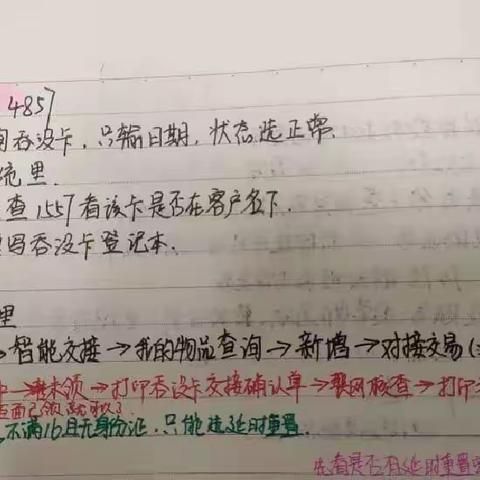 4857
吞没卡，只输日期，状态选正常
里.
查1557看该卡是否在客户名下.
吞没卡登记本.
理
智能交接→我的物品查询→新增→对接交易(
未领→打印吞没卡交接确认单→联网核查→打印
不满16且无身份证，只能选延时重置.
先看是否有延时重置